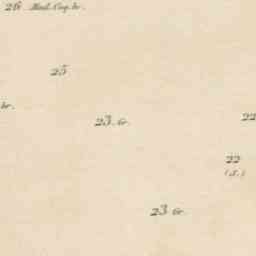 26 Mad. Cop. br.
25
br.
23. Gr.
22
22
(S.)
23 Gr.